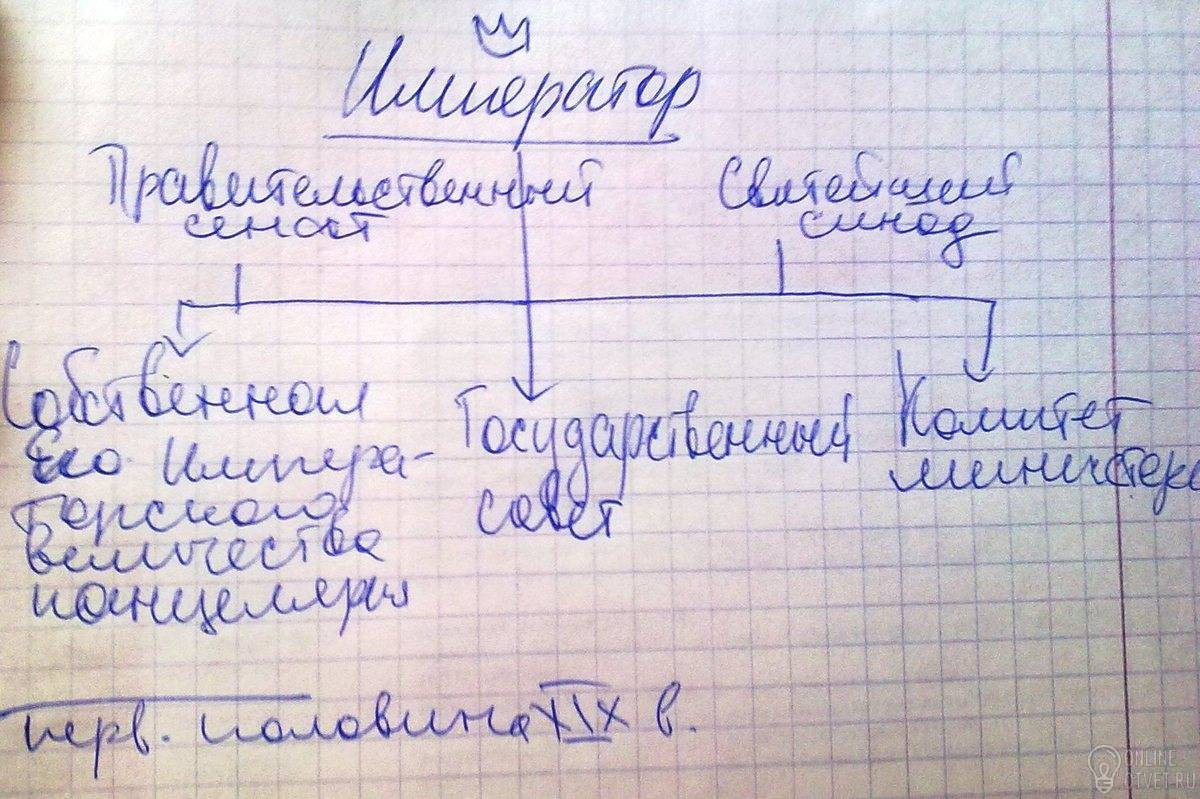 Император
Правительственный
сенат
Святейший
синод
Собственная
Его Импера-
торского
величества
канцелярия
Государственный
совет
Комитет
министров
перв. половина XIX в.
ONLINE
OTVET.RU